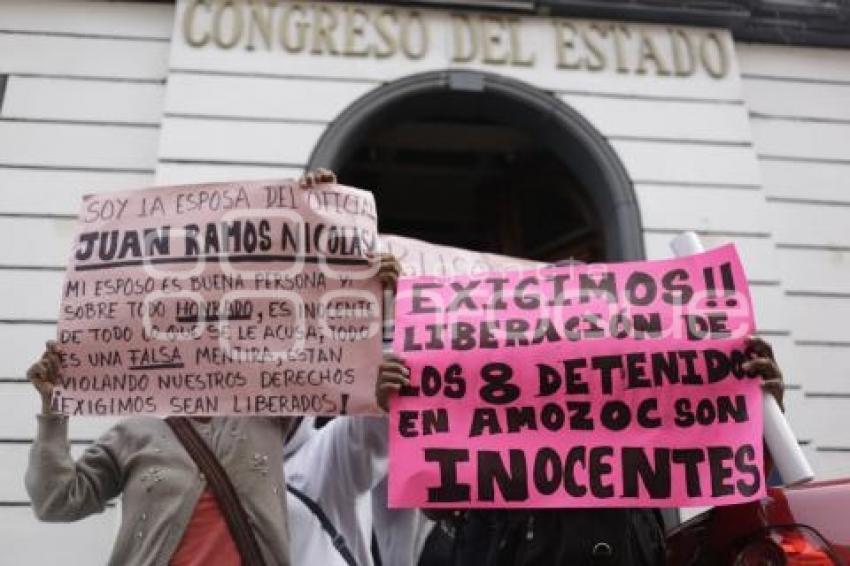 CONGRESO DEL ESTADO
SOY LA ESPOSA DEL OFICIAL
JUAN RAMOS NICOLAS
MI ESPOSO ES BUENA PERSONA Y
SOBRE TODO HONRADO, ES INOCENTE
DE TODO LO QUE SE LE ACUSA, TODO
ES UNA FALSA MENTIRA, ESTÁN
VIOLANDO NUESTROS DERECHOS
¡EXIGIMOS SEAN LIBERADOS!
EXIGIMOS!!
LIBERACIÓN DE
LOS 8 DETENIDOS
EN AMOZOC SON
INOCENTES